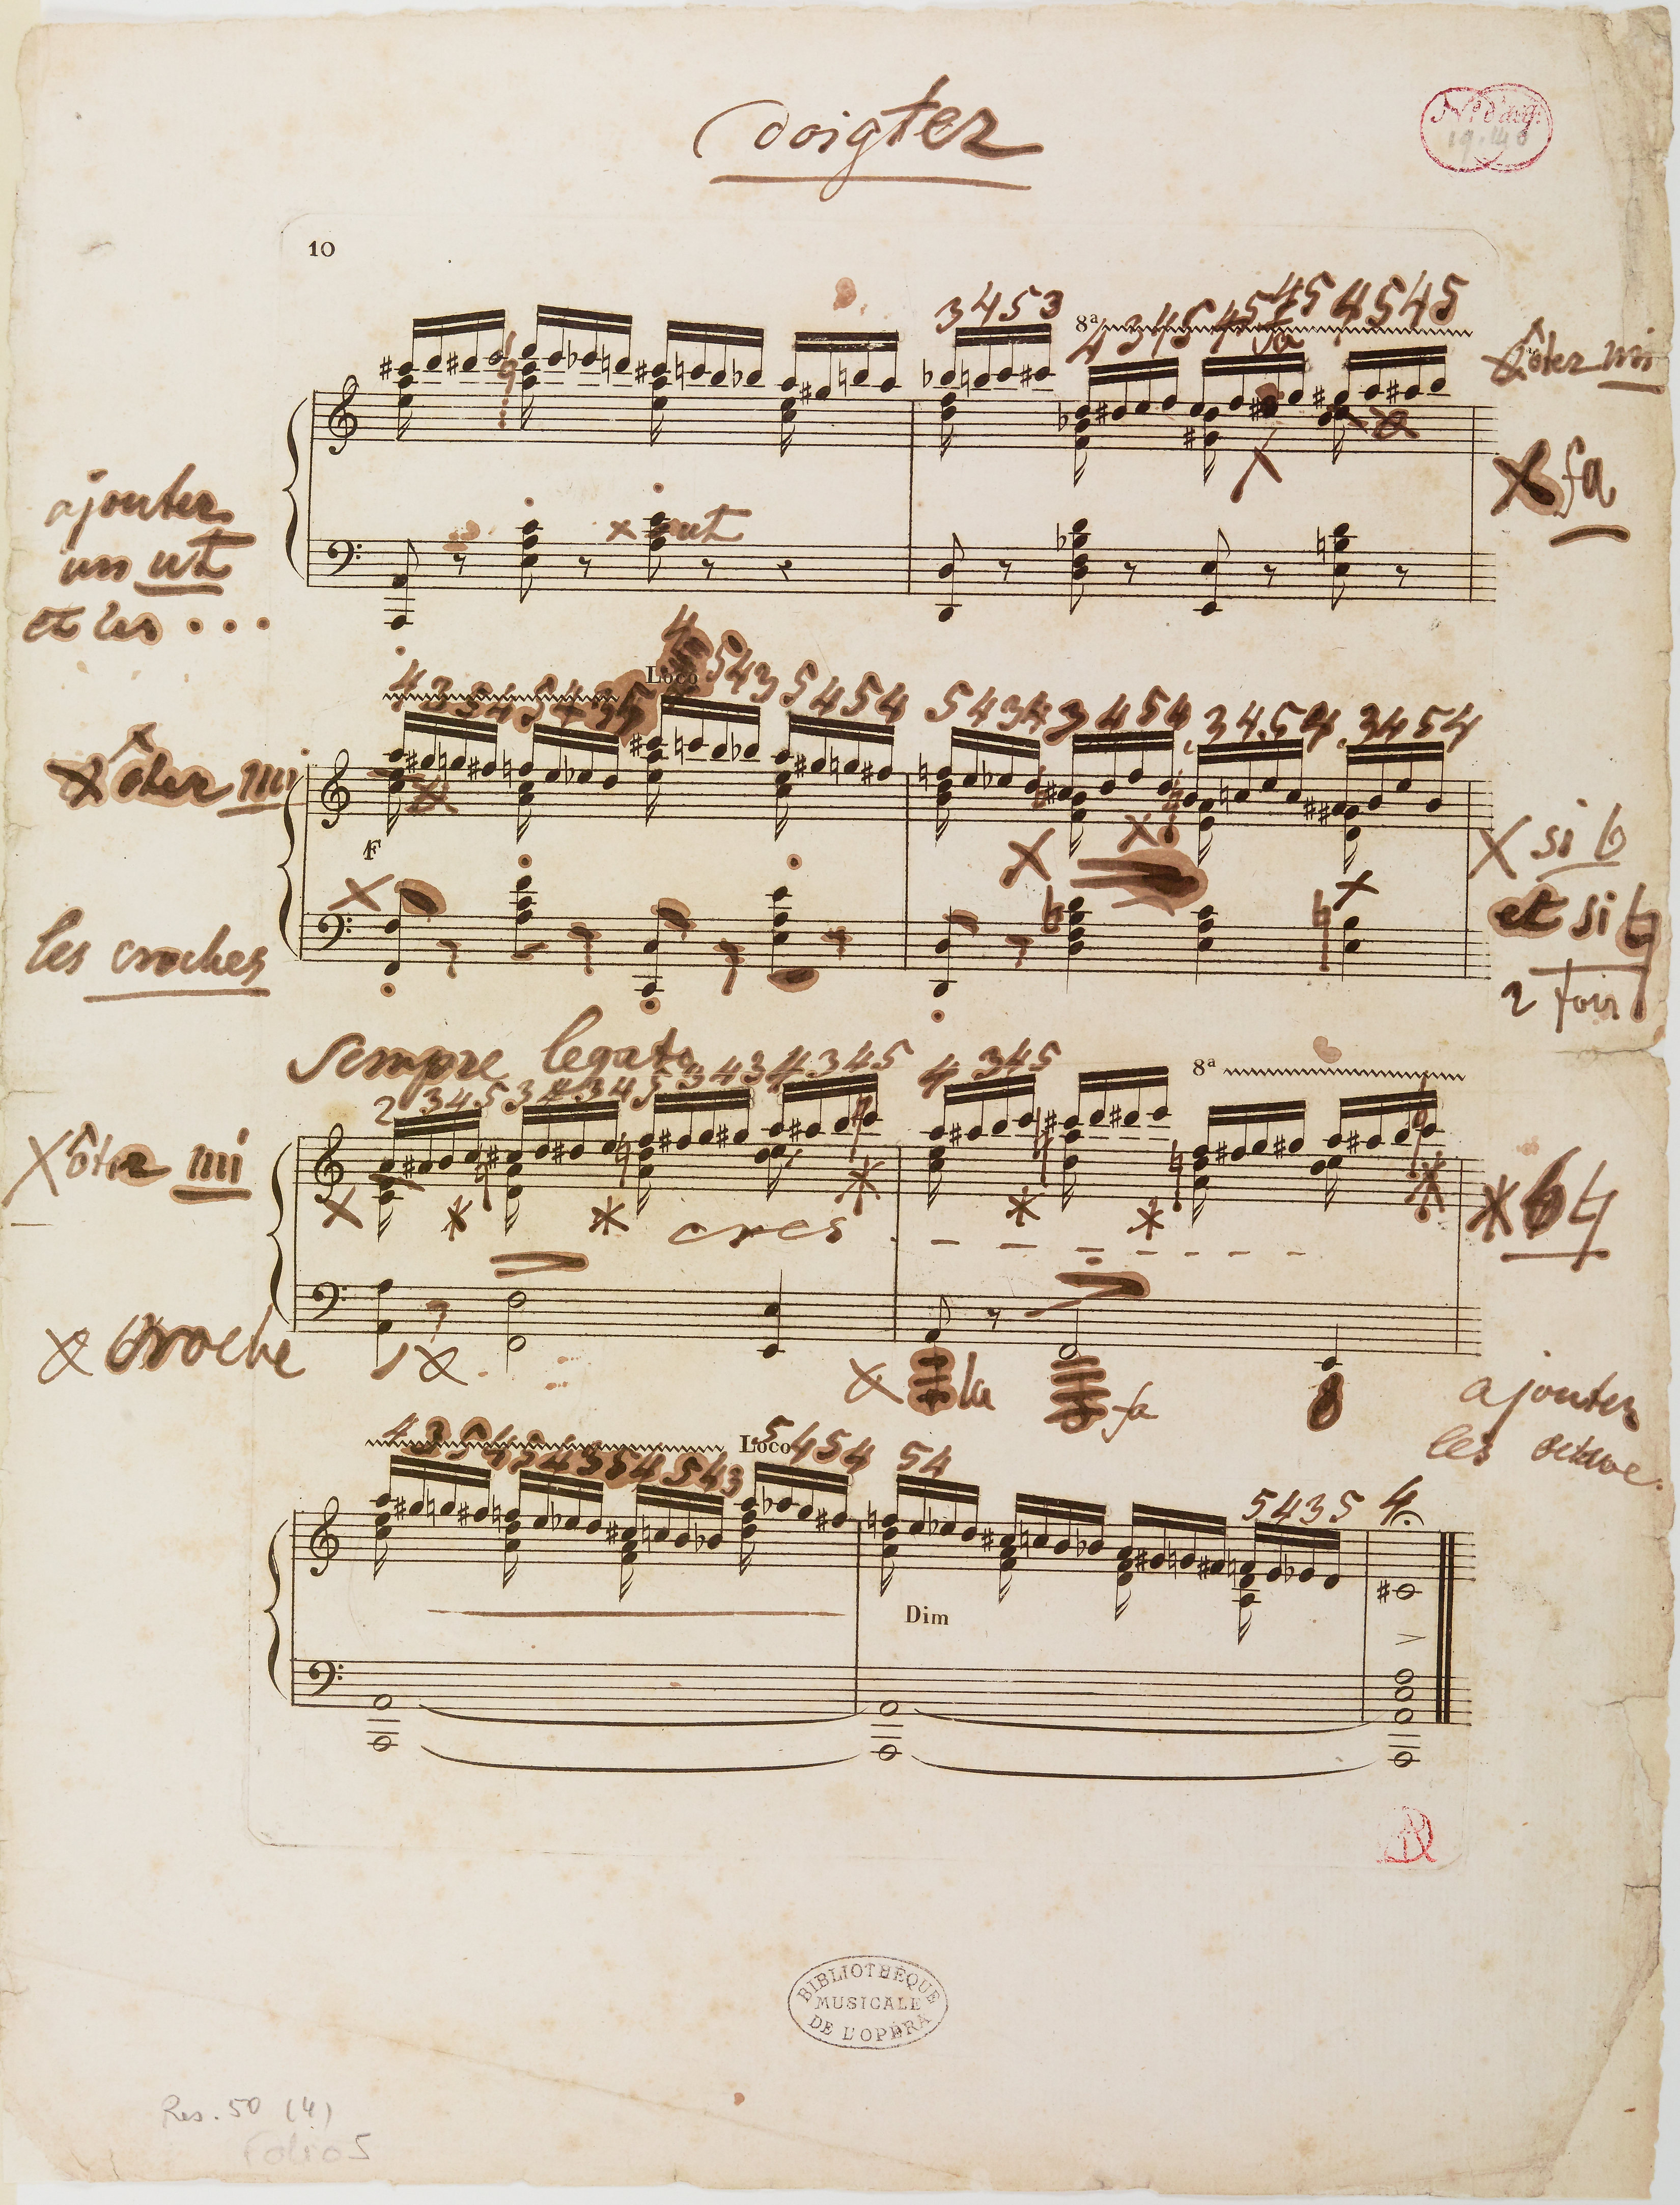 doigter
Nº d'acq.
19.440
10
3 4 5 3
8ª
4 3 4 5 4 5 4 5 4 5 4 5
fa
ôter mi
X fa
ajouter
un ut
et les . . .
x ut
4 3 5 4 5 4 3 5
Loco
4 5 4 3 5 4 5 4
5 4 3 4 3 4 5 4 3 4 5 4 3 4 5 4
X ôter mi
F
X si b
et si ♮
2 fois
les croches
Sempre legato
2 3 4 5 3 4 3 4 5 3 4 3 4 3 4 5
4 3 4 5
8ª
X ôter mi
cres
* b ♮
croche
la
fa
ajouter
les octave
4 3 5 4 5 4 3 5 4 5 4 3
Loco
5 4 5 4
5 4
5 4 3 5
4
Dim
BIBLIOTHÈQUE
MUSICALE
DE L'OPÉRA
Res. 50 (4)
Folio 5